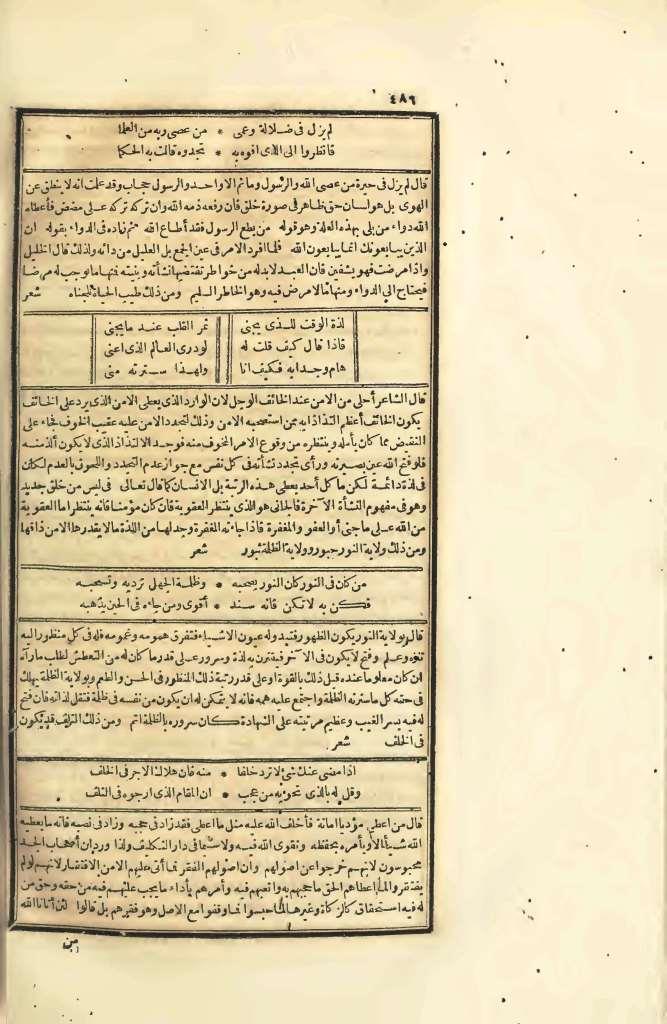 ٤٨٦
لم يزل فى ضلالة وعمى * من عصى ربه من العلما
فانظروا الى الذى افوه به * تجدوه قالت به الحكما
قال لم يزل فى حيرة من عصى الله والرسول وما ثم الا واحد والرسول حجاب وقد علمت انه لا ينطق عن
الهوى بل هو لسان حق ظاهر فى صورة خلق فان رفعه ذمه الله وان تركه تركه على مضض فأعطاه
الله دواء من بلى بهذه العلة وهو قوله من يطع الرسول فقد أطاع الله ثم زاده فى الدواء بقوله ان
الذين يبايعونك انما يبايعون الله فلما افرد الامر فى عين الجمع بل العليل من دائه ولذلك قال الخليل
واذا مرضت فهو يشفين فان العبد لا بد له من خواطر تقتضيها نشأته وبنيته فمنها ما يوجب له مرضا
فيحتاج الى الدواء ومنها ما لا مرض فيه وهو الخاطر السليم ومن ذلك طيب الحياة للجناه شعر
لذة الوقت للذى يجنى ثمر القلب عند ما يجنى
فاذا قال كيف قلت له لودرى العالم الذى اعنى
هام وجدا به فكيف انا ولهذا سترته منى
قال الشاعر أحلى من الامن عند الخائف الوجل لان الوارد الذى يعطى الامن الذى يرد على الخائف
يكون الخائف أعظم التذاذا به ممن استصحبه الامن وذلك لتجدد الامن عليه عقيب الخوف فجاء على
النقيض مما كان يأمله وينتظره من وقوع الامر المخوف منه فوجد الالتذاذ الذى لا يكون ألذ منه
فلو فتح الله عين بصيرته ورأى تجدد نشأته فى كل نفس مع جواز عدم التجدد واللحوق بالعدم لكان
فى لذة دائمة لكن ما كل أحد يعطى هذه الرتبة بل الانسان كما قال تعالى فى لبس من خلق جديد
وهو فى مفهوم النشأة الآخرة فالجانى هو الذى ينتظر العقوبة فان كان مؤمنا فانه ينتظر اما العقوبة
من الله على ما جنى أو العفو والمغفرة فاذا جاءته المغفرة وجد لها من اللذة ما لا يقدرها الا من ذاقها
ومن ذلك ولاية النور حبور وولاية الظلمة ثبور شعر
من كان فى النور كان النور يصحبه * وظلمة الجهل ترديه وتسحبه
فكن به لا تكن فانه سند * أقوى ومن جاءه فى الحين يذهبه
قال بولاية النور يكون الظهور فتبدو له عيون الاشياء فتفرق همومه وغمومه فله فى كل منظور اليه
تنزه وعلم وفتح لا يكون فى الآخر فيقترن به لذة وسرور على قدر ما كان له من التعطش لطلب ما رآه
ان كان معلوما عنده قبل ذلك بالقوة او على قدر رتبة ذلك المنظور فى الحسن والطعم وبولاية الظلمة يهلك
فى حقه كل ما سترته الظلمة واجتمع عليه همه فانه لا يتمكن له ان يكون من نفسه فى ظلمة فتنقل لذاته فان فتح
له فيه بسر الغيب وعظيم مرتبته على الشهادة كان سروره بالظلمة اتم ومن ذلك التلف قد يكون
فى الخلف شعر
اذا مضى عنك شئ لا ترد خلفا * منه فان هلاك الاجر فى الخلف
وقل له بالذى تحويه من عجب * ان المقام الذى ارجوه فى التلف
قال من اعطى مؤديا امانة فأخلف الله عليه مثل ما اعطى فقد زاد فى حجبه وزاد فى نصبه فانه ما يعطيه
الله شيأ الا ويأمره بحفظه وتقوى الله فيه ولا سيما فى دار التكليف ولذا ورد ان أصحاب الجد
محبوسون لانهم خرجوا عن اصولهم وان اصولهم الفقر فما أتى عليهم الا من الافتقار لانهم لو لم
يفتقروا لما اعطاهم الحق ما حجبهم به واتعبهم فيه وأمرهم بأداء ما يجب عليهم فيه من حقه وحق من
له فيه استحقاق كالزكاة وغيرها لما حبسوا فما وقفوا مع الاصل وهو فقرهم بل قالوا لئن أتانا الله
من